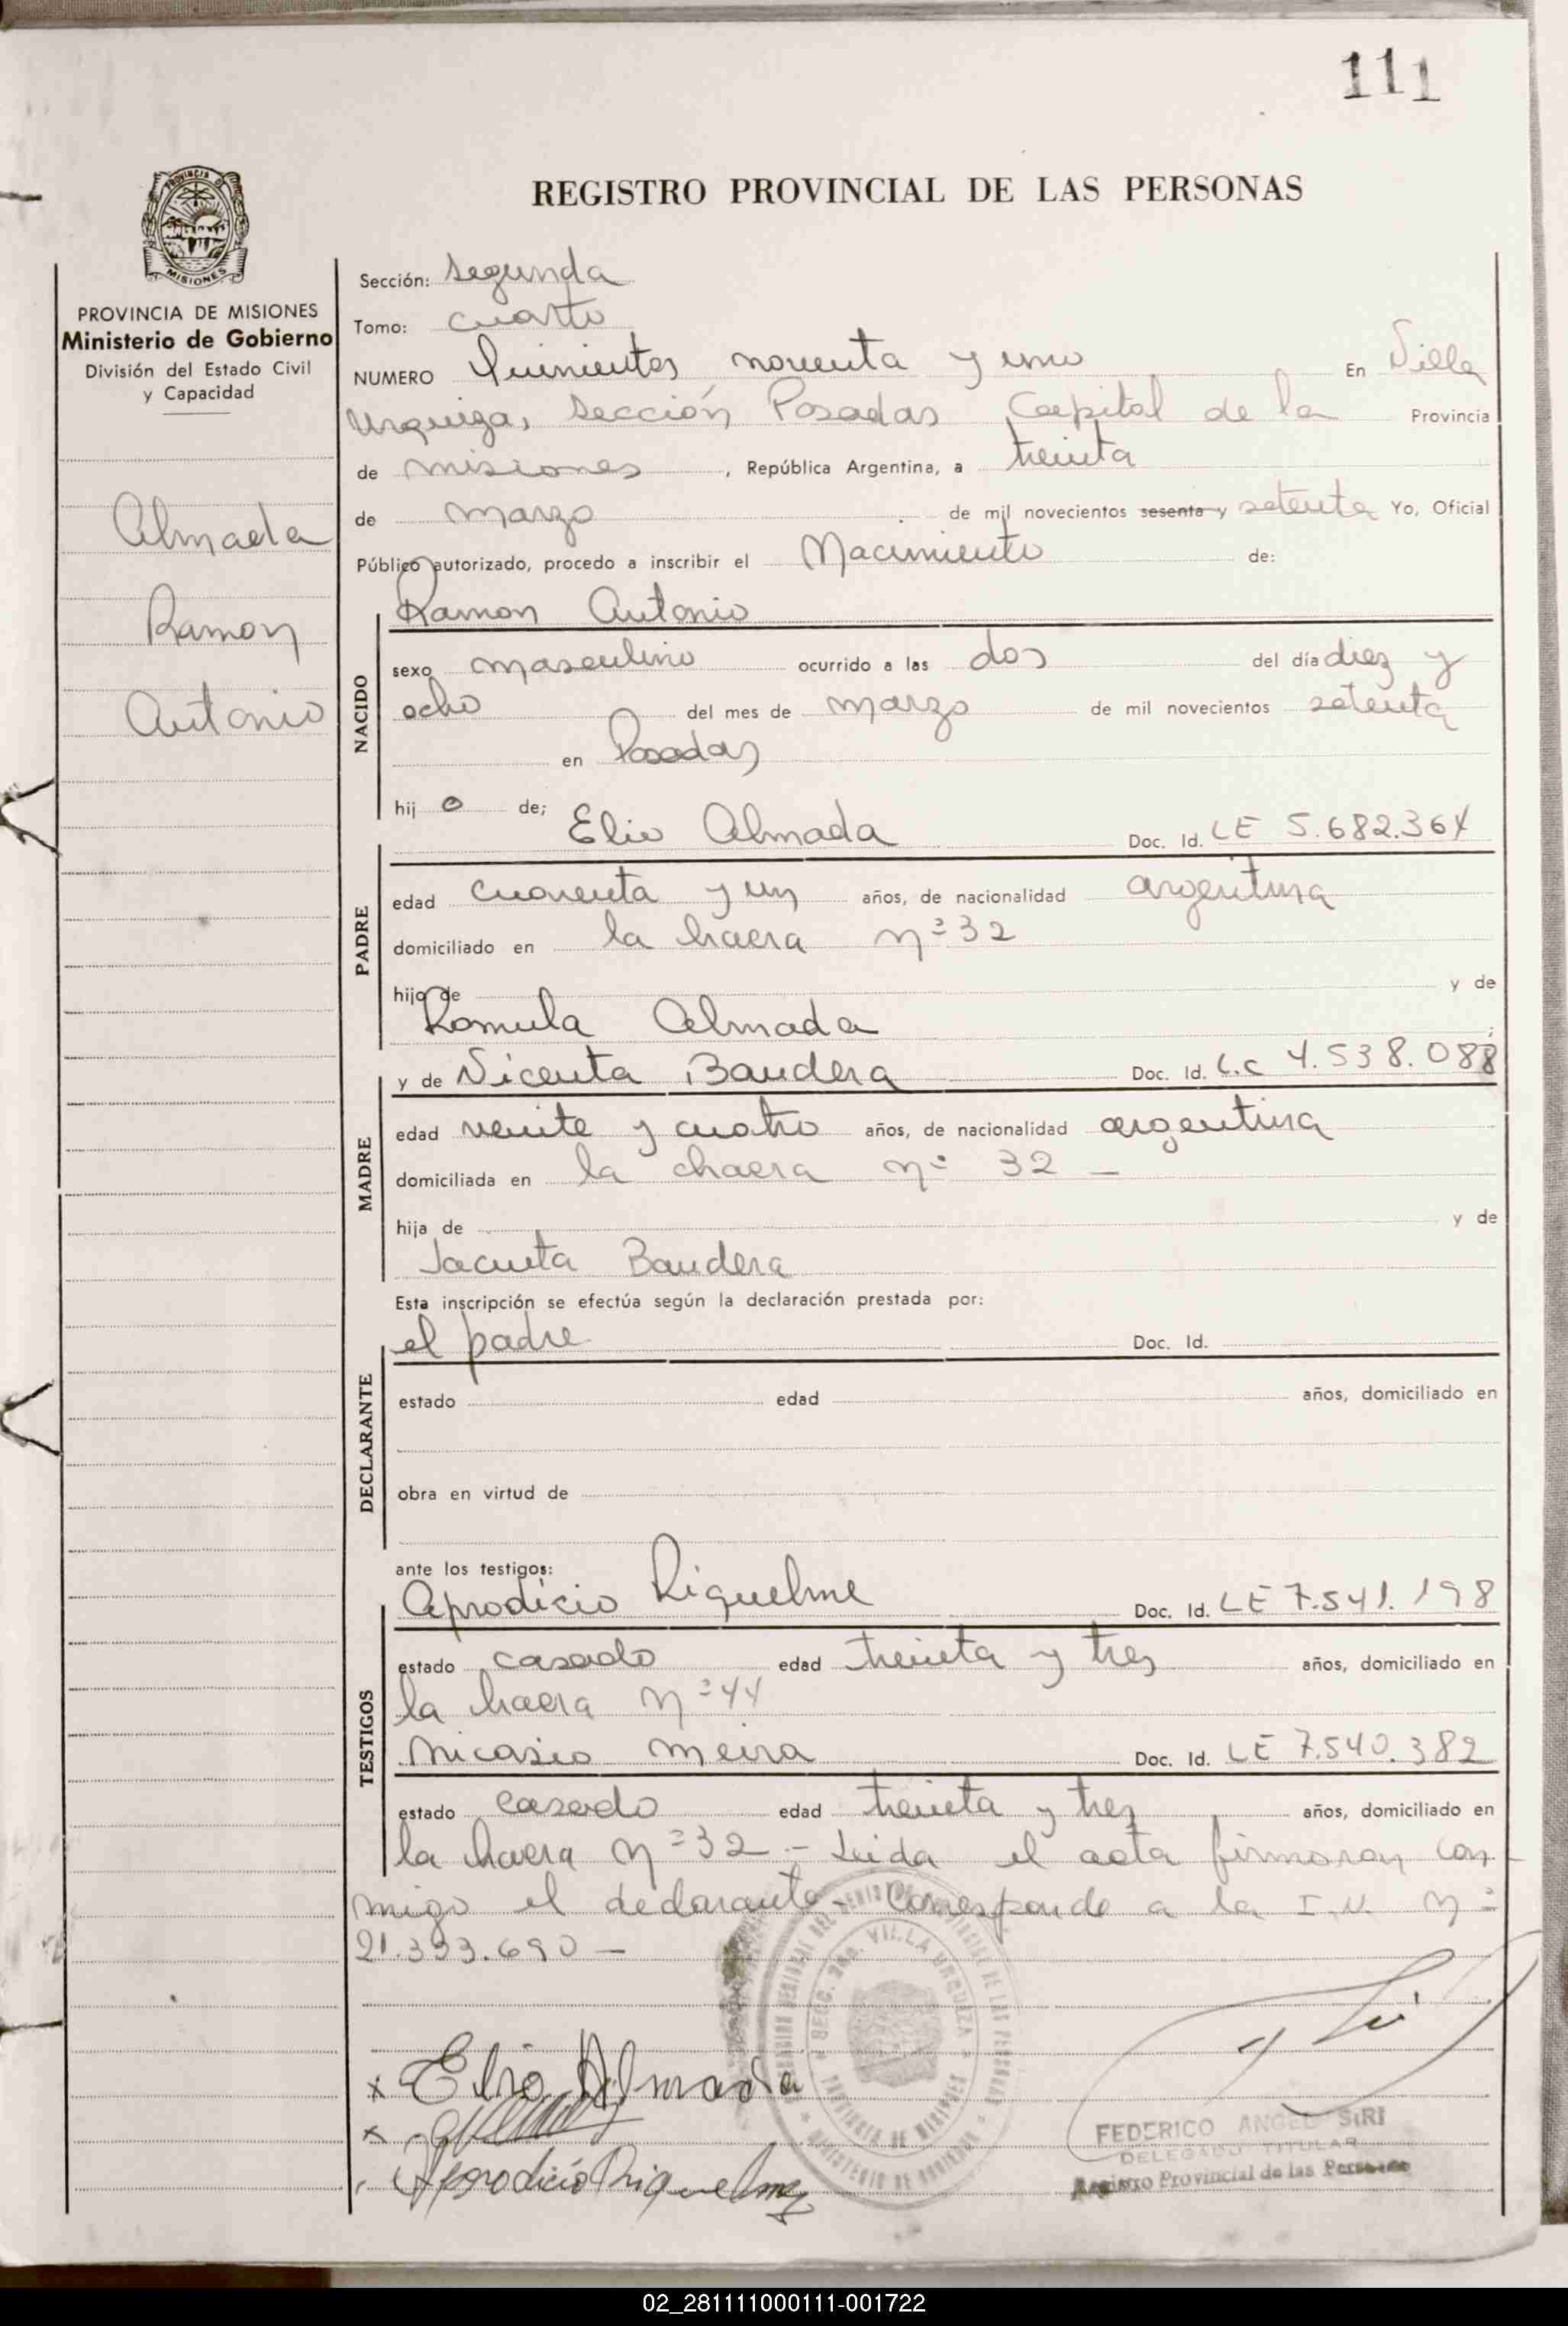 111
REGISTRO PROVINCIAL DE LAS PERSONAS
PROVINCIA DE MISIONES
Ministerio de Gobierno
División del Estado Civil
y Capacidad
Almada
Ramon
Antonio
Sección: segunda
Tomo: cuarto
NUMERO Quinientos noventa y uno En Villa
Urquiza, Sección Posadas Capital de la Provincia
de misiones, República Argentina, a treinta
de marzo de mil novecientos sesenta y setenta Yo, Oficial
Público autorizado, procedo a inscribir el Nacimiento de:
Ramon Antonio
NACIDO
sexo masculino ocurrido a las dos del día diez y
ocho del mes de marzo de mil novecientos setenta
en Posadas
hij o de;
Elio Almada Doc. Id. LE 5.682.364
PADRE
edad cuarenta y un años, de nacionalidad argentina
domiciliado en la hacra nº 32
hijo de y de
Romula Almada ;
y de Vicenta Bandera Doc. Id. L.C 4.538.088
MADRE
edad veinte y cuatro años, de nacionalidad argentina
domiciliada en la chacra nº 32 —
hija de y de
Jacinta Bandera
Esta inscripción se efectúa según la declaración prestada por:
el padre Doc. Id.
DECLARANTE
estado edad años, domiciliado en
obra en virtud de
ante los testigos:
Aprodicio Riquelme Doc. Id. LE 7.541.198
TESTIGOS
estado casado edad treinta y tres años, domiciliado en
la hacra nº 44
Nicasio Meira Doc. Id. LE 7.540.382
estado casado edad treinta y tres años, domiciliado en
la hacra nº 32 - Leida el acta firmaran con
migo el declarante - Corresponde a la I.N. nº
21.393.690 —
SECC. 2da. VILLA URQUIZA
PROVINCIA DE MISIONES
x Elio Almada
x
Aprodicio Riquelme
FEDERICO ANGEL SIRI
DELEGADO TITULAR
Registro Provincial de las Personas
02_281111000111-001722